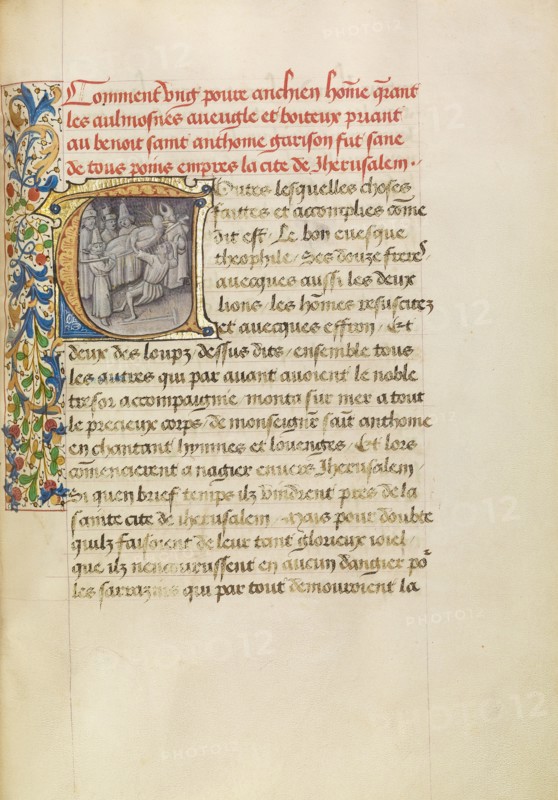 Comment vng poure anchien hom̃e q̃rant
les aulmosnes aueugle et boiteux priant
au benoit saint anthome garison fut sane
de tous poins empres la cite de Jherusalem .
Outes lesquelles choses
faittes et accomplies com̃e
dit est / Le bon euesque
theophile / Ses douze freres
auecques aussi les deux
lions / les hõmes resuscitez
et auecques effron / Et
deux des loupz / dessus dits / ensemble tous
les autres qui par auant auoient le noble
tresor accompaignie / monta sur mer a tout
le precieux corps / de monseign̄r sait̄ anthome
en chantant hymnes et louenges / Et lors
com̃encierent a nagier enuers Jherusalem /
Si quen brief temps ilz vindrent pres de la
sainte cite de iherusalem / Mais pour doubte
quilz faisoient de leur tant glorieux ioiel /
que ilz nencourussent en aucun dangier po᷑
les sarrazins qui par tout demouroient la
PHOTO12